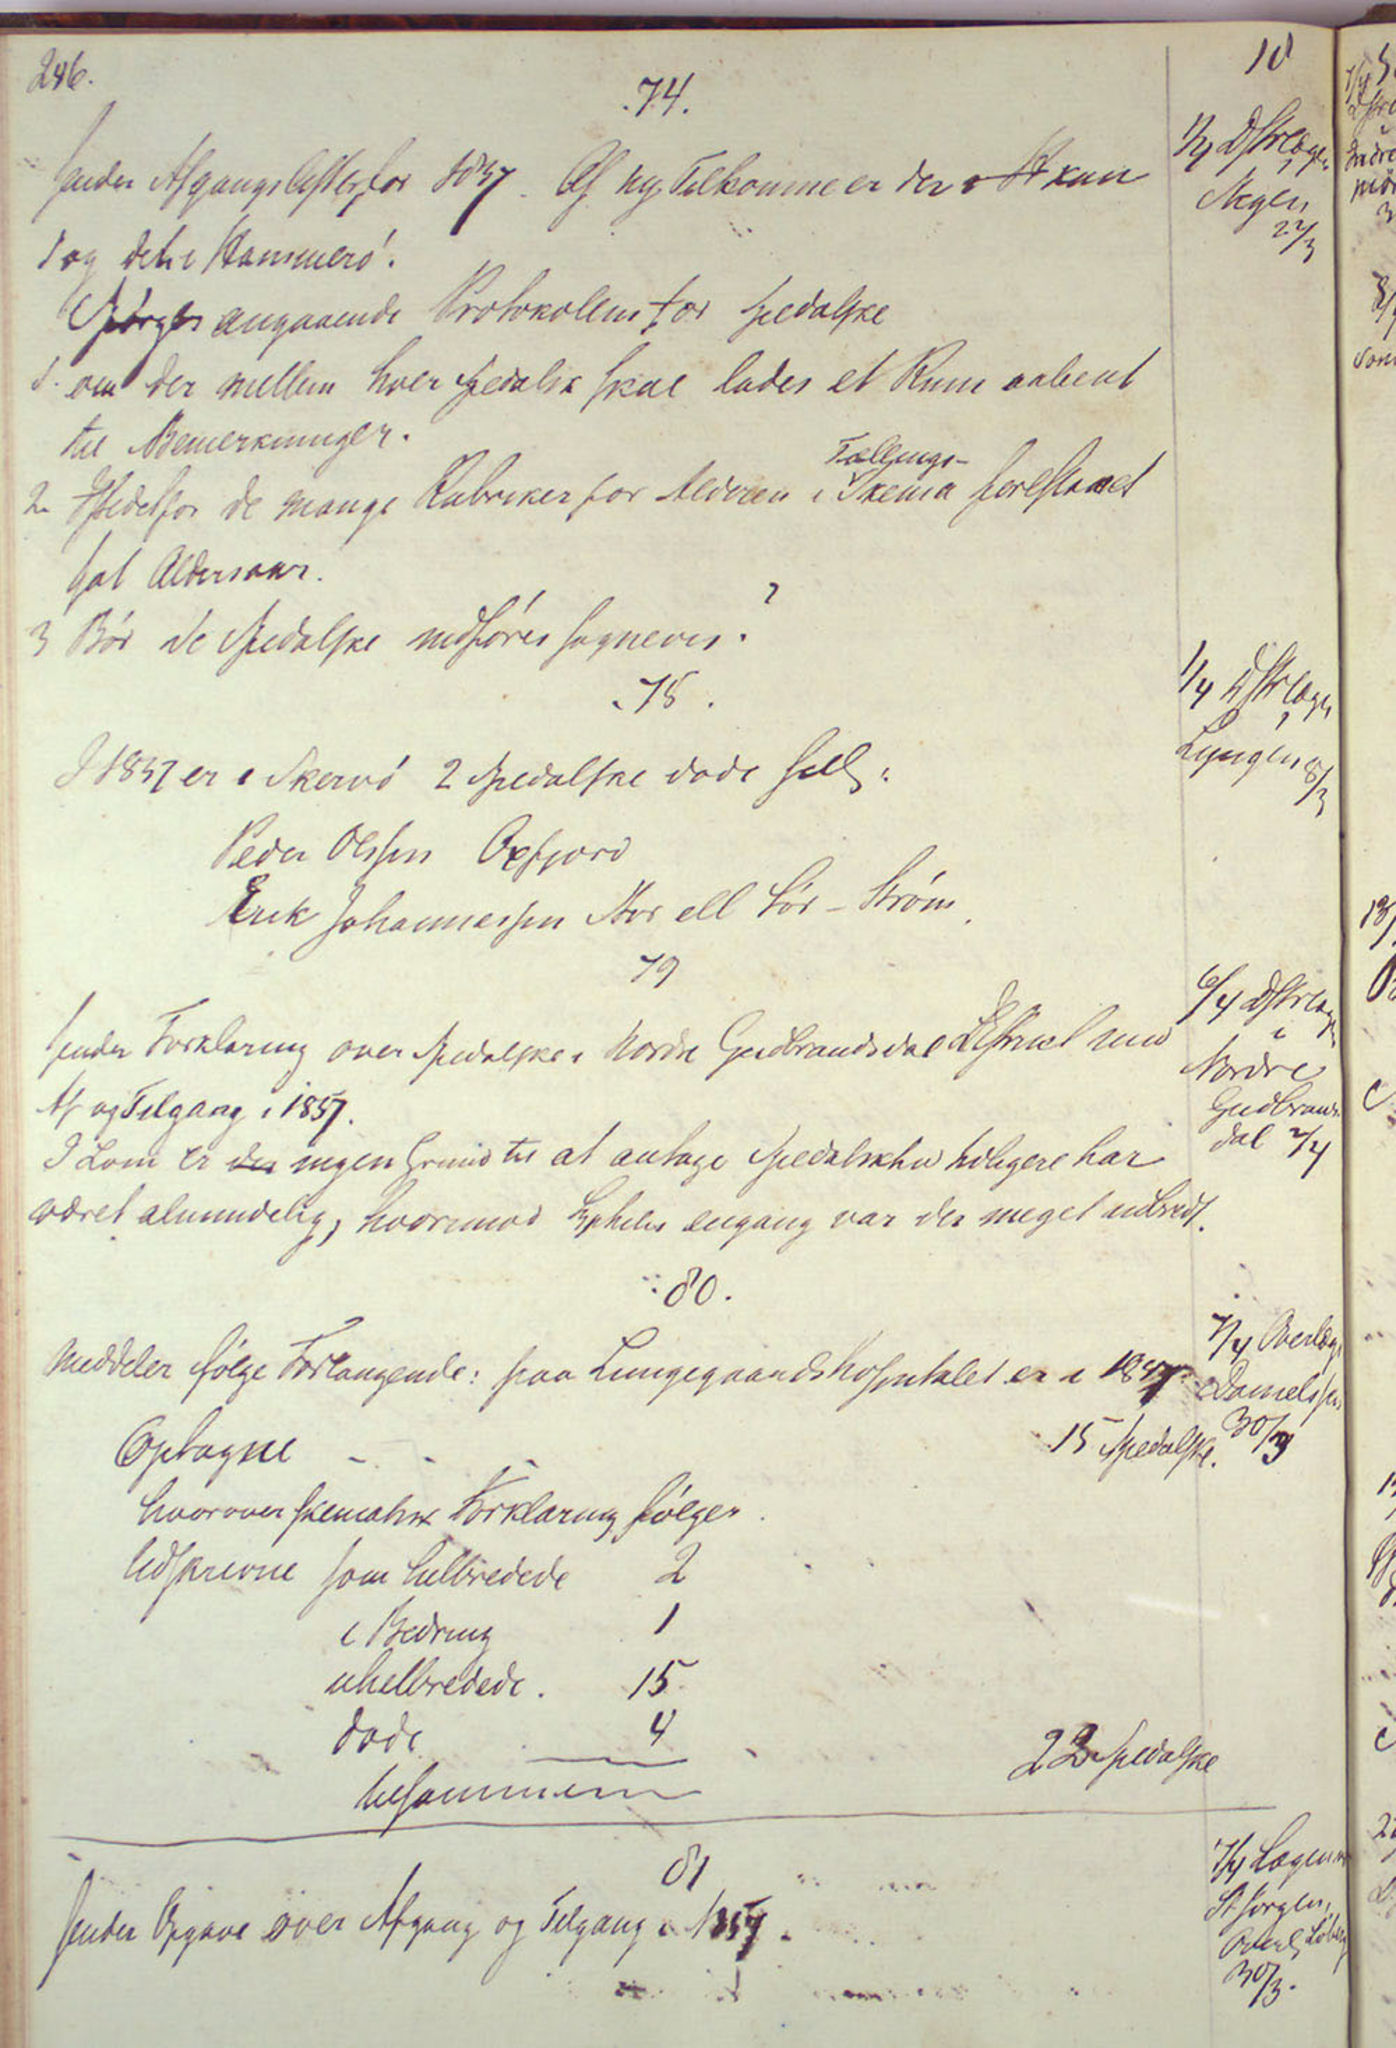 246.
18
74.
sender Afgangslister for 1857. Af ny Tilkomne er der i St kun
1 og det i Hammerø.
Spørges angaaende Protokollen for spedalske
1. om der mellem hver spedalsk skal lades et Rum aabent
til Bemerkninger.
2. Istedetfor de mange Rubriker for Alderen i Tællings-Skema foreslaaet
sat Aldersaar.
3 Bør de spedalske indføres sognevis?
1/4 Dstrlægen
i
22/3
75.
I 1857 er i Skervø 2 spedalske døde
Peder Olssen Oxfjord
Erik Johannessen Nor ell Sør-Strøm.
1/4 Dstrlægen
i
Lyngen 8/3
79
sender Forklaring over spedalske i Nordre Gudbrandsdal District med
Af og Tilgang i 1857.
I Lom er der ingen Grund til at antage spedalskhed tidligere har
været almindelig, hvorimod Syphilis engang var der meget udbredt.
6/4 Dstrlægen
i
Nordre
Gudbrands
dal 2/4
80.
Meddeler følge Forlangende: paa Lungegaardshospitalet er i 1857
Optagne - - - 15 spedalske.
hvorover skematisk Forklaring følger.
Udskrevne som helbredede 2
i Bedring 1
uhelbredede. 15
døde 4
tilsammen 22 spedalske
7/4 Overlæge
Danielssen
30/3
81
sender Opgave over Afgang og Tilgang i 1857.
7/4 Lægen ve
St Jørgen,
Overl. Løberg
30/3.